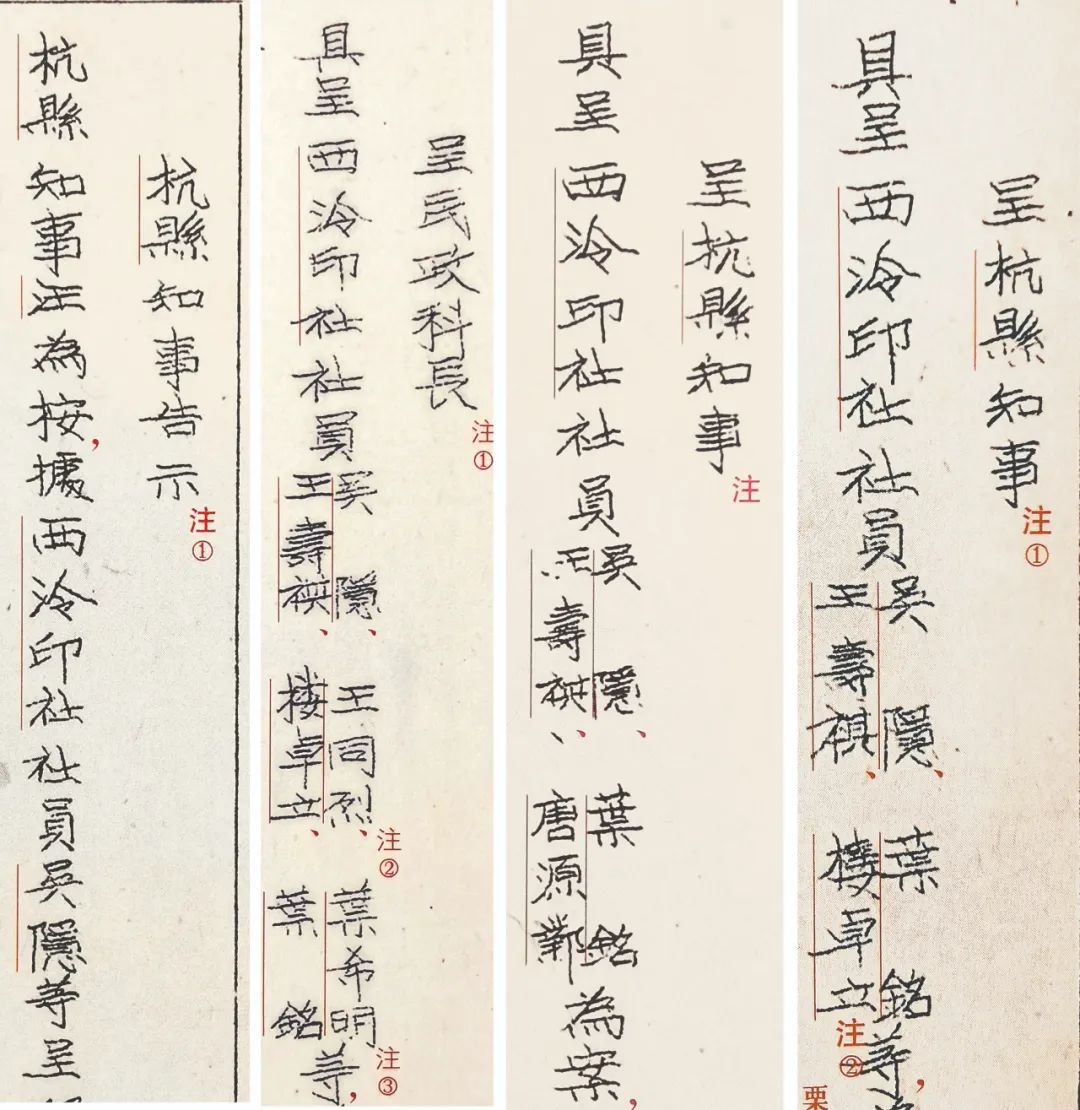 杭縣知事告示注①
杭縣知事汪為按，據西泠印社社員吳隱等呈
呈民政科長注①
具呈西泠印社社員
吳隱、王同烈、注②葉希明
王壽祺、樓卓立、葉銘
等，注③
呈杭縣知事注
具呈西泠印社社員
吳隱、葉銘
王壽祺、唐源鄴
為案，
呈杭縣知事注①
具呈西泠印社社員
吳隱、葉銘
王壽祺、樓卓立注②
等，
栗